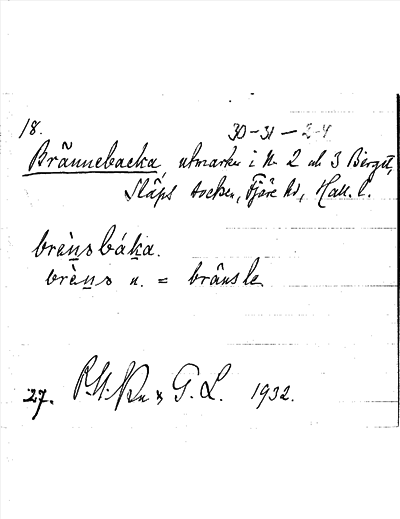 18.
30-31-2-4
Brännebacka, utmarker i N. 2 och 3 Berget,
Släps socken, Fjäre hd, Hall. l.
brènsbáka.
brèns n. = bränsle
27. & G. L. 1932.